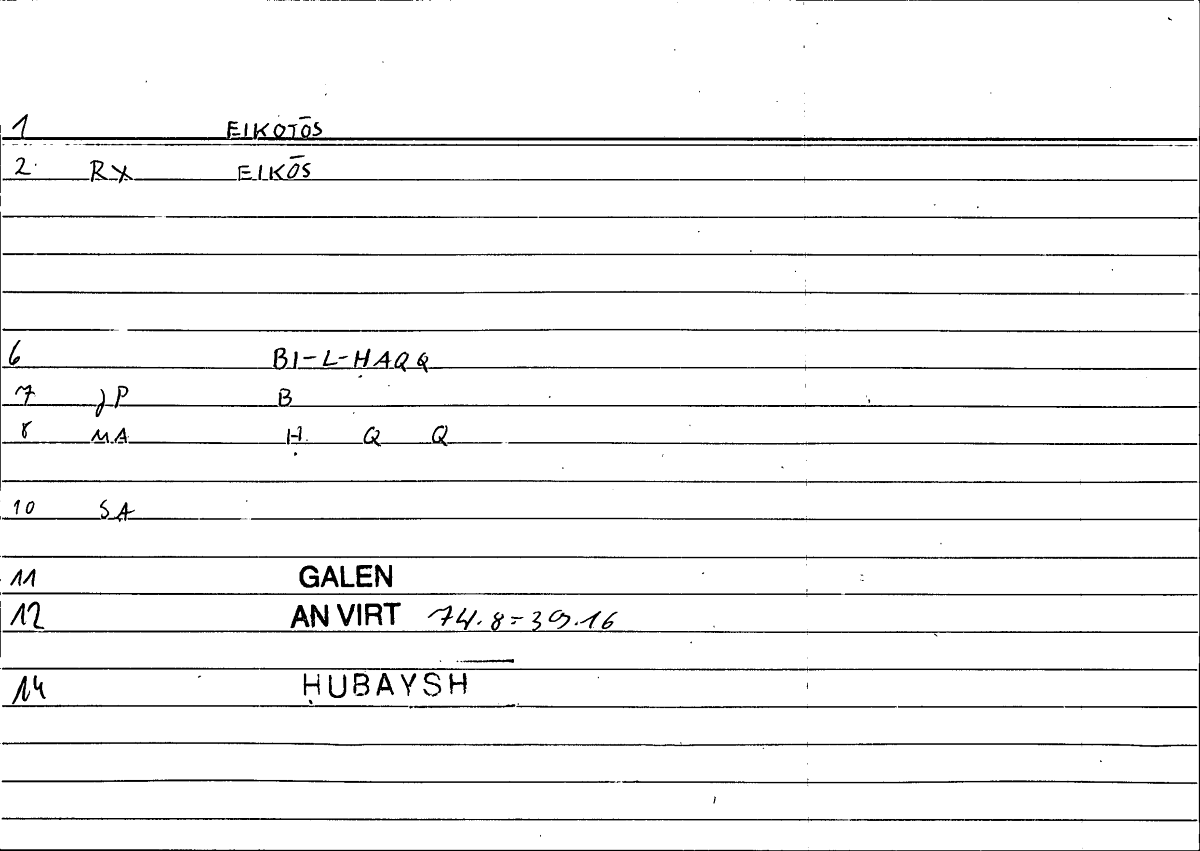 1 EIKOTŌS
2. RX EIKŌS
6 BI-L-ḤAQQ
7 JP B
8 MA Ḥ Q Q
10 SA
11 GALEN
12 AN VIRT 74.8=39.16
14 ḤUBAYSH